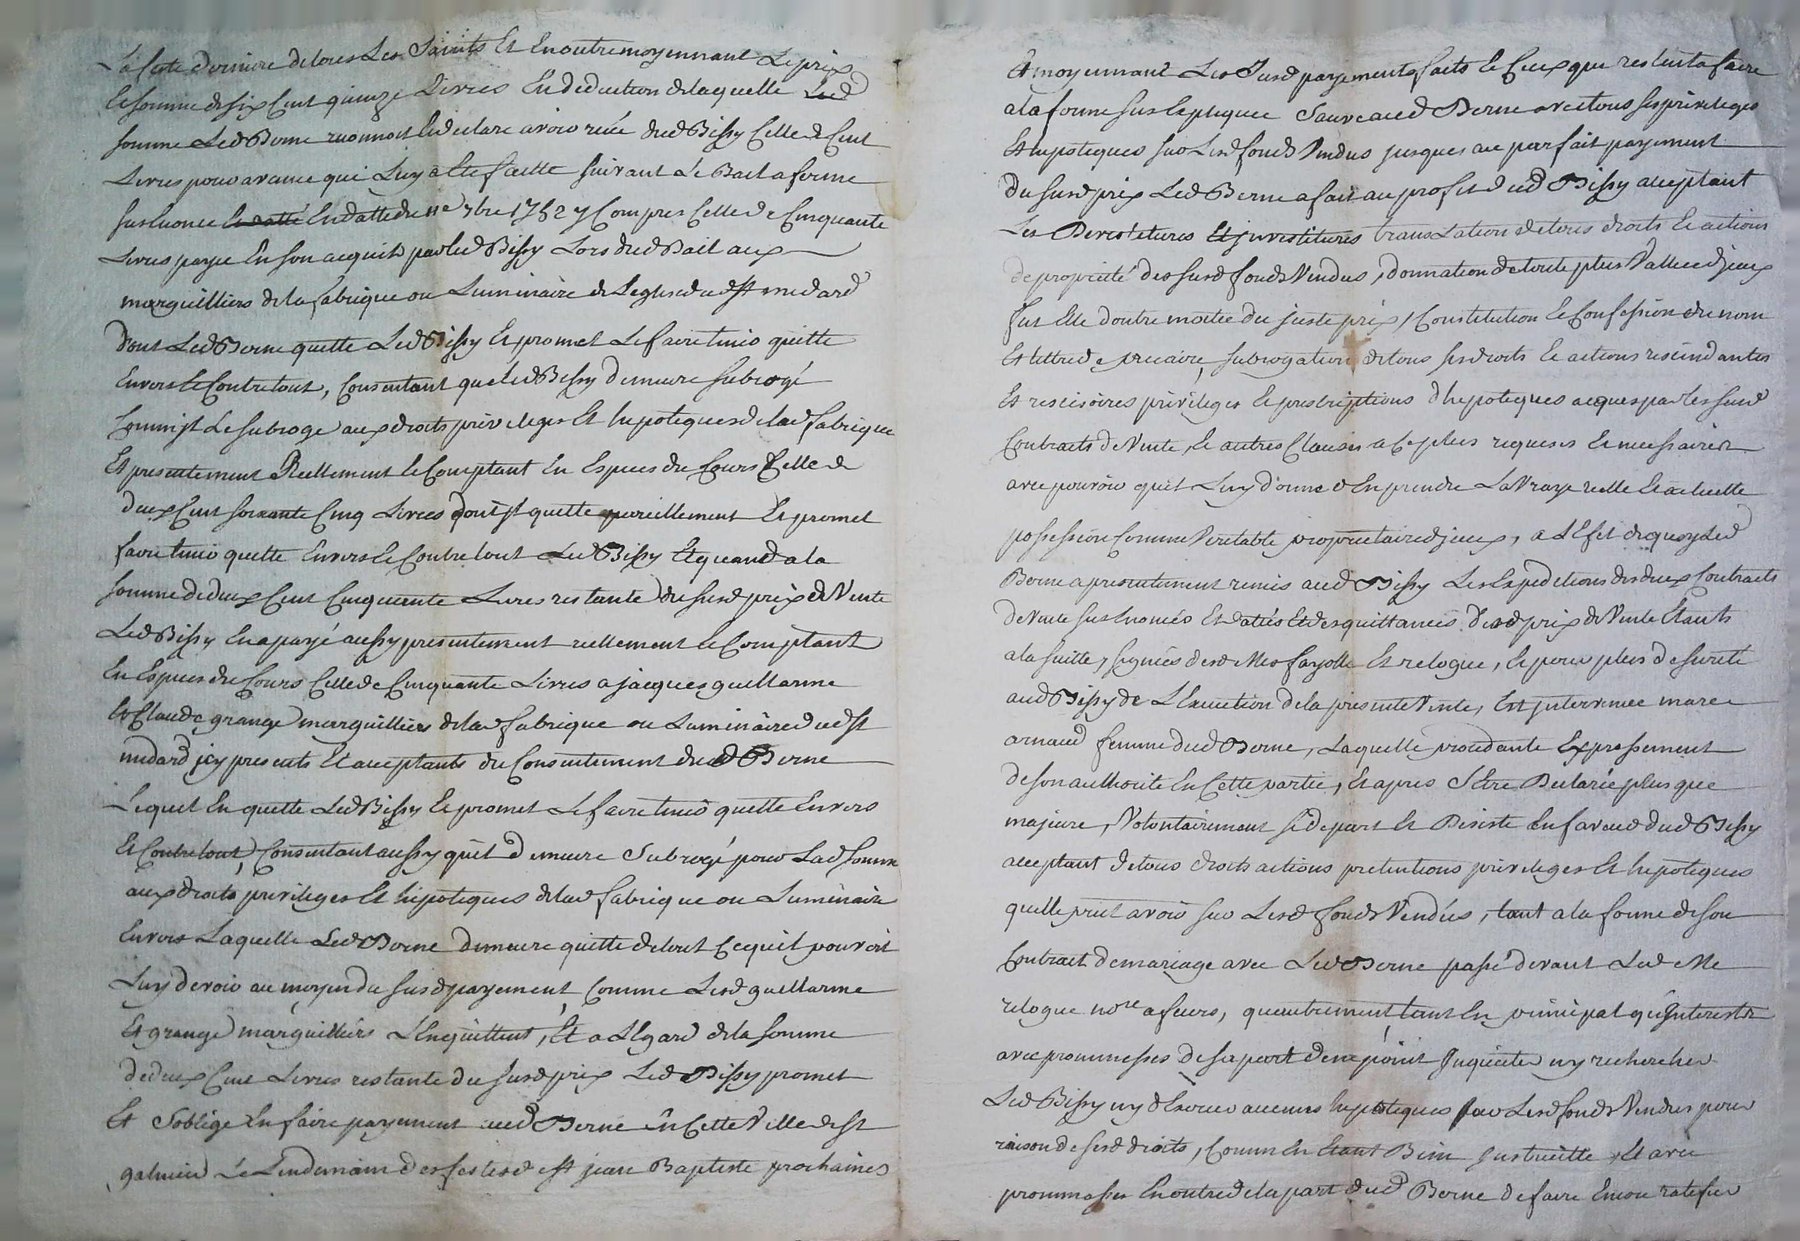 La feste derniere de tous Les Saints Et En outre moyennant Le prix
Et somme de six Cent quinze Livres En deduction de laquelle Lad
somme Led Berne reconnoit Et declare avoir receu dud Bissy Celle de Cent
Livres pour avance qui Luy a Eté faitte suivant Le Bail a ferme
susenoncé En datte du 11e 7bre 1752 y Compris Celle de Cinquante
Livres payée En son acquit par led Bissy Lors dud Bail aux
marguilliers de la fabrique ou Luminaire de Leglise dud st medard
dont Led Berne quitte Led Bissy Et promet Le faire tenir quitte
Envers Et Contre tout, Consentant que led Bissy demeure subrogé
Comm'jl Le subroge aux droits privileges Et hypoteques de lad fabrique
Et presentement Reellement Et Comptant En Especes du Cours Celle de
deux Cent soixante Cinq Livres dont jl quitte pareillement Et promet
faire tenir quitte Envers Et Contre tout Led Bissy Et quand a la
somme de deux Cent Cinquante Livres restante du susd prix de Vente
Led Bissy En a payé aussy presentement reellement Et Comptant
En Especes du Cours Celle de Cinquante Livres a jacques guellarme
Et Claude grange marguilliers de lad fabrique ou Luminaire dud st
medard jcy presents Et acceptants du Consentement dud Berne
Lequel En quitte Led Bissy Et promet Le faire tenir quitte Envers
Et Contre tout, Consentant aussy qu'il demeure subrogé pour Lad somme
aux droits privileges Et hipoteques de lad fabrique ou Luminaire
Envers Laquelle Led Berne demeure quitte de tout Ce qu'il pouvoit
Luy devoir au moyen du susd payement, Comme Lesd guellarme
Et grange marguilliers L'En quittent, Et a L'Egard de la somme
de deux Cent Livres restante du susd prix Led Bissy promet
Et S'oblige En faire payement aud Berne En Cette Ville de st
galmier Le Lendemain des festes de st jean Baptiste prochaines
Et moyennant Les Susd payements faits Et Ceux que restent a faire
a la forme sus Expliquée Sauve aud Berne avec tous ses privileges
Et hypoteques sur Lesd fonds Vendus jusques au parfait payement
du susd prix Led Berne a fait au profit dud Bissy acceptant
Les Devestitures Et jnvestitures translation de tous droits Et actions
de proprieté des susd fonds Vendus, donnation de toute plus Vallue d'jceux
fut Elle d'outre moitié du juste prix, Constitution Et Confession de nom
Et tittre de precaire, subrogation de tous ses droits Et actions rescindantes
Et rescisoires privileges Et prescriptions d'hypoteques acquis par les susd
Contracts de Vente, Et autres Clauses a Ce plus requises Et necessaires
avec pouvoir qu'il Luy donne d'En prendre La Vraye reelle Et actuelle
possession Comme Veritable proprietaire d'jceux, a L'Effet de quoy Led
Berne a presentement remis aud Bissy Les Expeditions des deux Contracts
de Vente sus Enoncés Et datés Et des quittances desd prix de Vente Etants
a la suitte, signées desd Mes fayolle Et relogue, Et pour plus de sureté
aud Bissy de L'Execution de la presente Vente, Est jntervenue marie
arnaud femme dud Berne, Laquelle procedante Expressement
de son authorité En Cette partie, Et apres S'Etre Declarée plus que
majeure, Volontairement se depart Et Desiste En faveur dud Bissy
acceptant de tous droits actions pretentions privileges Et hypoteques
qu'elle peut avoir sur Lesd fonds Vendus, tant a la forme de son
Contract de mariage avec Led Berne passé devant Led Me
relogue nore a feurs, qu'autrement, tant En principal qu'jnterests
avec prommesses de sa part de ne point jnquieter ny rechercher
Led Bissy ny d'Exercer aucunes hypoteques sur Lesd fonds Vendus pour
raison de sesd droits, Comm'En Etant Bien jnstruitte, Et avec
prommesses En outre de la part dud Berne de faire Encore ratefier